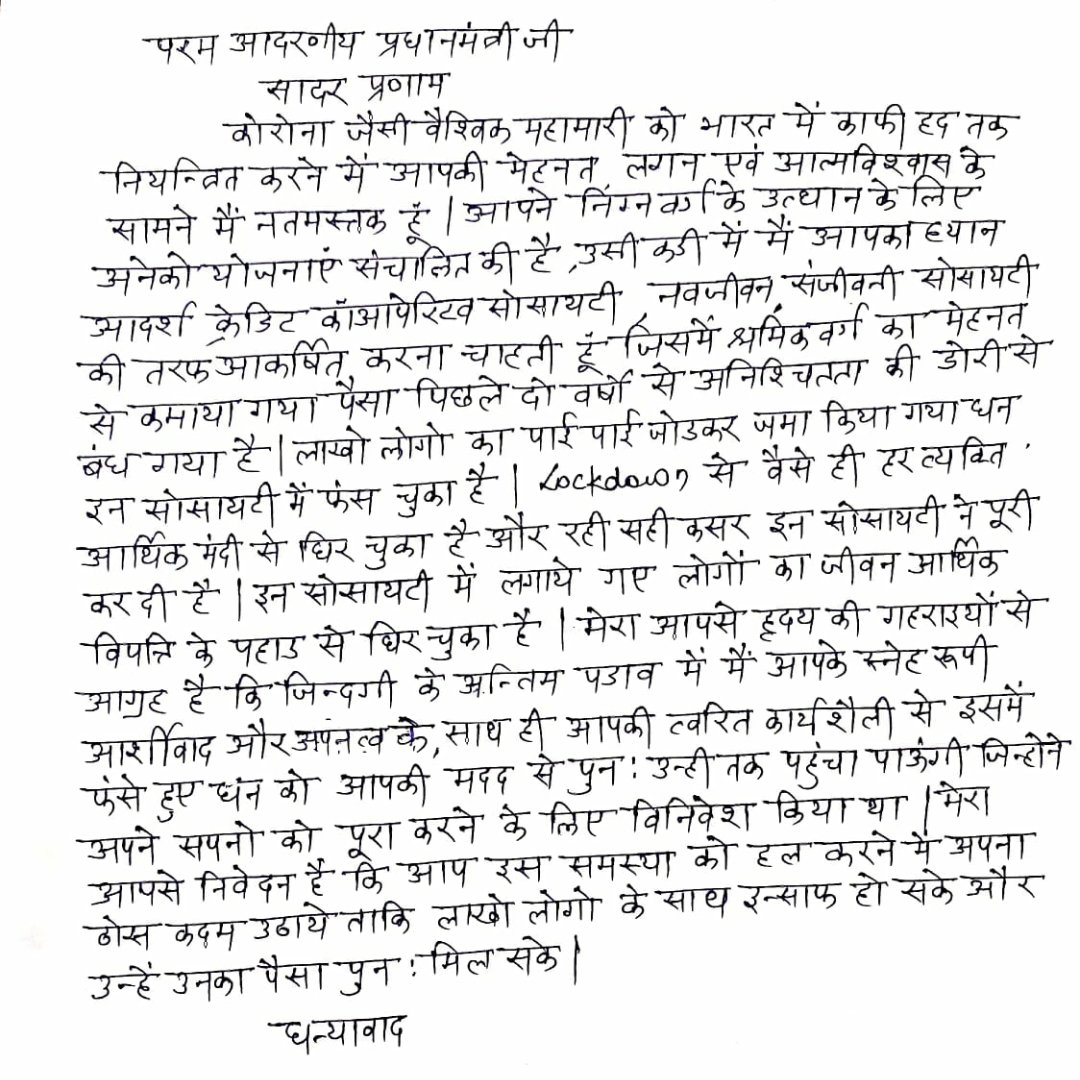 परम आदरणीय प्रधानमंत्री जी
सादर प्रणाम
कोरोना जैसी वैश्विक महामारी को भारत में काफी हद तक
नियन्त्रित करने में आपकी मेहनत, लगन एवं आत्मविश्वास के
सामने मैं नतमस्तक हूं | आपने निम्न वर्ग के उत्थान के लिए
अनेको योजनाएं संचालित की है, उसी कडी में मैं आपका ध्यान
आदर्श क्रेडिट कॉओपरेटिव सोसायटी, नवजीवन, संजीवनी सोसायटी
की तरफ आकर्षित करना चाहती हूं, जिसमें श्रमिक वर्ग का मेहनत
से कमाया गया पैसा पिछले दो वर्षों से अनिश्चितता की डोरी से
बंध गया है | लाखो लोगो का पाई पाई जोडकर जमा किया गया धन
इन सोसायटी में फंस चुका है | Lockdown से वैसे ही हर व्यक्ति
आर्थिक मंदी से घिर चुका है और रही सही कसर इन सोसायटी ने पूरी
कर दी है | इन सोसायटी में लगाये गए लोगों का जीवन आर्थिक
विपत्ति के पहाड से घिर चुका है | मेरा आपसे हृदय की गहराइयों से
आग्रह है कि जिन्दगी के अन्तिम पडाव में मैं आपके स्नेह रूपी
आर्शीवाद और अपनत्व के, साथ ही आपकी त्वरित कार्यशैली से इसमें
फंसे हुए धंन को आपकी मदद से पुन: उन्ही तक पहुंचा पाऊंगी जिन्होने
अपने सपनो को पूरा करने के लिए विनिवेश किया था | मेरा
आपसे निवेदन है कि आप इस समस्या को हल करने में अपना
ठोस कदम उठाये ताकि लाखो लोगो के साथ इन्साफ हो सके और
उन्हें उनका पैसा पुन: मिल सके |
धन्यावाद